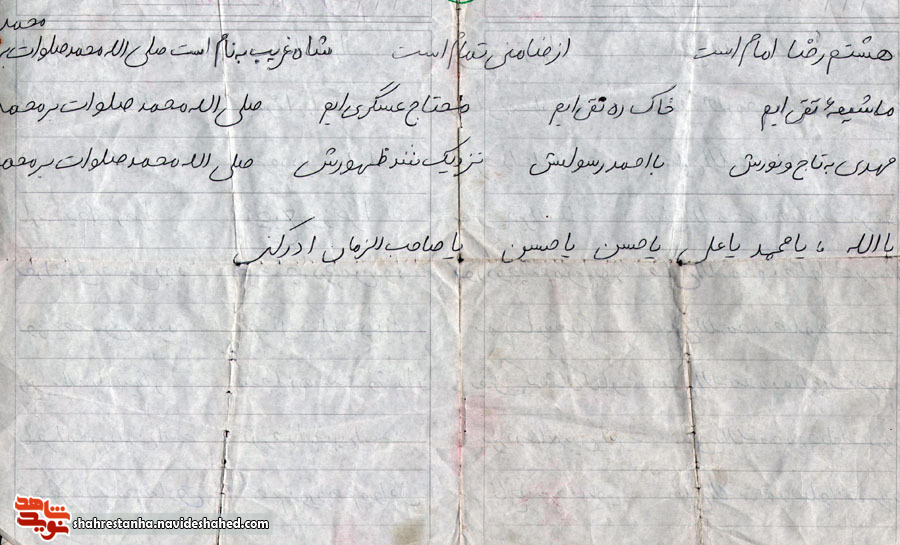 محمد
هشتم رضا امام است از ضامنی تمام است شاه غریب بنام است صلی الله محمد صلوات بر
ما شیعهٔ تقی ایم خاک ره نقی ایم محتاج عسگری ایم صلی الله محمد صلوات بر محمد
مهدی به تاج و نورش با احمد رسولش نزدیک شد ظهورش صلی الله محمد صلوات بر محمد
یا الله یا محمد یا علی یا حسن یا حسین یا صاحب الزمان ادرکنی
نوید شاهد
shahrestanha.navideshahed.com